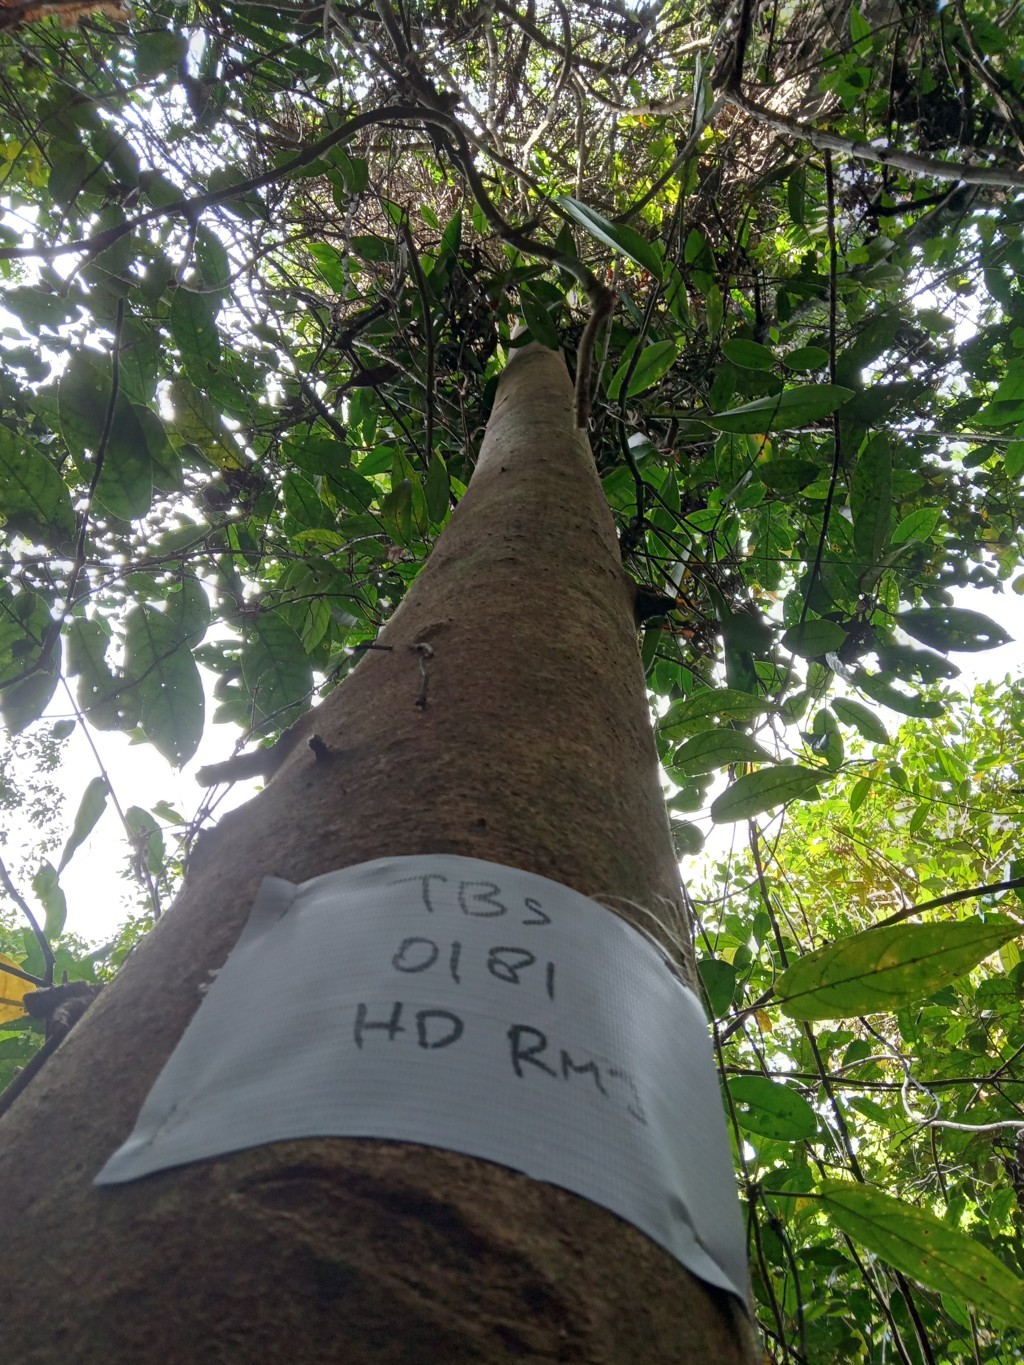 TBS
0181
HD RM